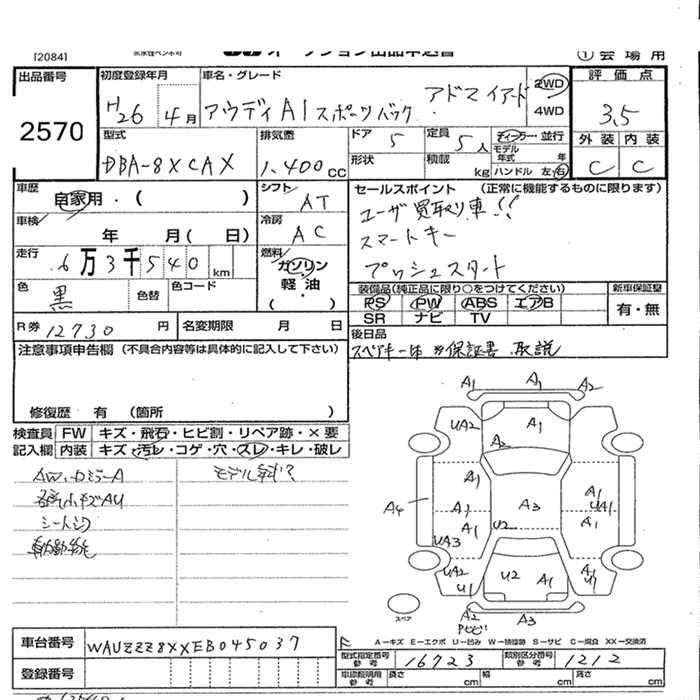 [2084]
オークション出品申込書
① 会場用
出品番号
2570
初度登録年月
H26年4月
車名・グレード
アウディ A1 スポーツバック アドマイアード
2WD
4WD
評価点
3.5
外装 内装
C C
型式
DBA-8XCAX
排気量
1,400cc
ドア 5
定員 5人
形状
積載 kg
ディーラー・並行
モデル年式 年
ハンドル 左・右
車歴
自家用・( )
シフト
AT
車検
年 月( 日)
冷房
AC
走行
6万3千540km
燃料
ガソリン・軽油・( )
色
黒
色替
色コード
セールスポイント (正常に機能するものに限ります)
ユーザ買取り車!!
スマートキー
プッシュスタート
装備品(純正品に限り○をつけてください)
PS PW ABS エアB
SR ナビ TV
新車保証書
有・無
R券 12730円
名変期限 月 日
後日品
スペアキー1本 保証書 取説
注意事項申告欄 (不具合内容等は具体的に記入して下さい)
修復歴 有 (箇所 )
検査員記入欄
FW キズ・飛石・ヒビ割・リペア跡・×要
内装 キズ・汚レ・コゲ・穴・スレ・キレ・破レ
AW、ロミラーA
各キ小キズAU
シート
モデル年式?
A1 A1 A2
UA2 A1
A2
A1 A1
A4 A1 A3 UA1
A1 U2 A1
UA3
UA2 U2 A1 A1
U1 U1
スペア
A2 A3
A−キズ E−エクボ U−凹み W−補修跡 S−サビ C−腐食 XX−交換済
車台番号
WAUZZZ8XXEB045037
型式指定番号 参考
16723
類別区分番号 参考
1212
登録番号
車庫証明用 参考
長さ cm
幅 cm
高さ cm